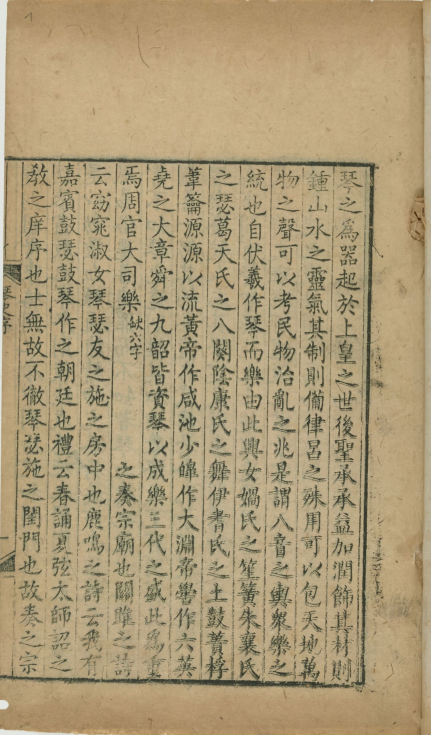 琴之為器起於上皇之世後聖承承益加潤飾其材則
鍾山水之靈氣其制則備律呂之殊用可以包天地萬
物之聲可以考民物治亂之兆是謂八音之輿眾樂之
統也自伏羲作琴而樂由此興女媧氏之笙簧朱襄氏
之瑟葛天氏之八闋陰康氏之舞伊耆氏之土鼓蕢桴
葦籥源源以流黃帝作咸池少皞作大淵帝嚳作六英
堯之大章舜之九韶皆資琴以成樂三代之盛此為重
焉周官大司樂缺六字之奏宗廟也關雎之詩
云窈窕淑女琴瑟友之施之房中也鹿鳴之詩云我有
嘉賓鼓瑟鼓琴作之朝廷也禮云春誦夏弦太師詔之
教之庠序也士無故不徹琴瑟施之閨門也故奏之宗